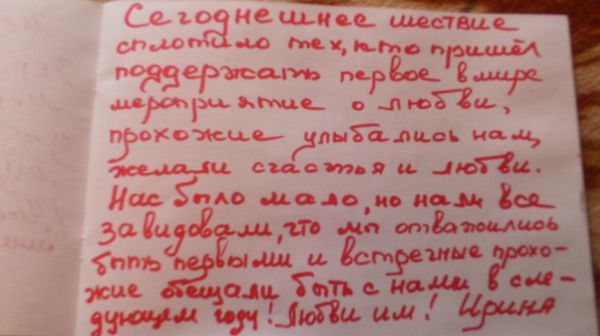 Сегоднешнее шествие
сплотило тех, кто пришёл
поддержать первое в мире
мероприятие о любви,
прохожие улыбались нам,
желали счастья и любви.
Нас было мало, но нам все
завидовали, что мы отважились
быть первыми и встречные прохо-
жие обещали быть с нами в сле-
дующем году! Любви им! Ирина